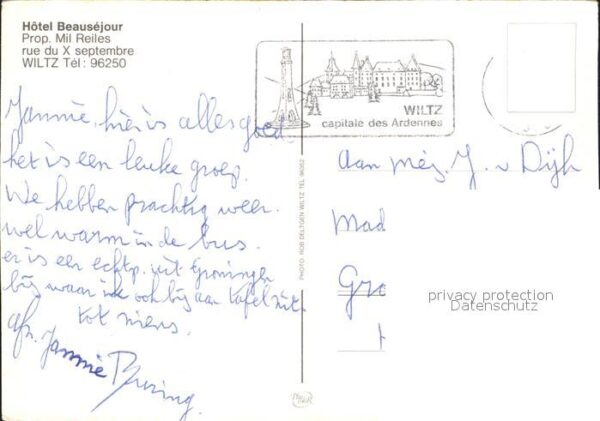 Hôtel Beauséjour
Prop. Mil Reiles
rue du X septembre
WILTZ Tél : 96250
WILTZ
capitale des Ardennes
Jannie, hier is alles goed
het is een leuke groep.
We hebben prachtig weer.
wel warm in de bus.
er is een echtp. uit Groningen
bij waar ik ook bij aan tafel zit.
tot ziens.
Jannie
PHOTO ROB DELTGEN WILTZ TÉL. 96362
Aan mej. J. v Dijk
Mad
Gro
privacy protection
Datenschutz